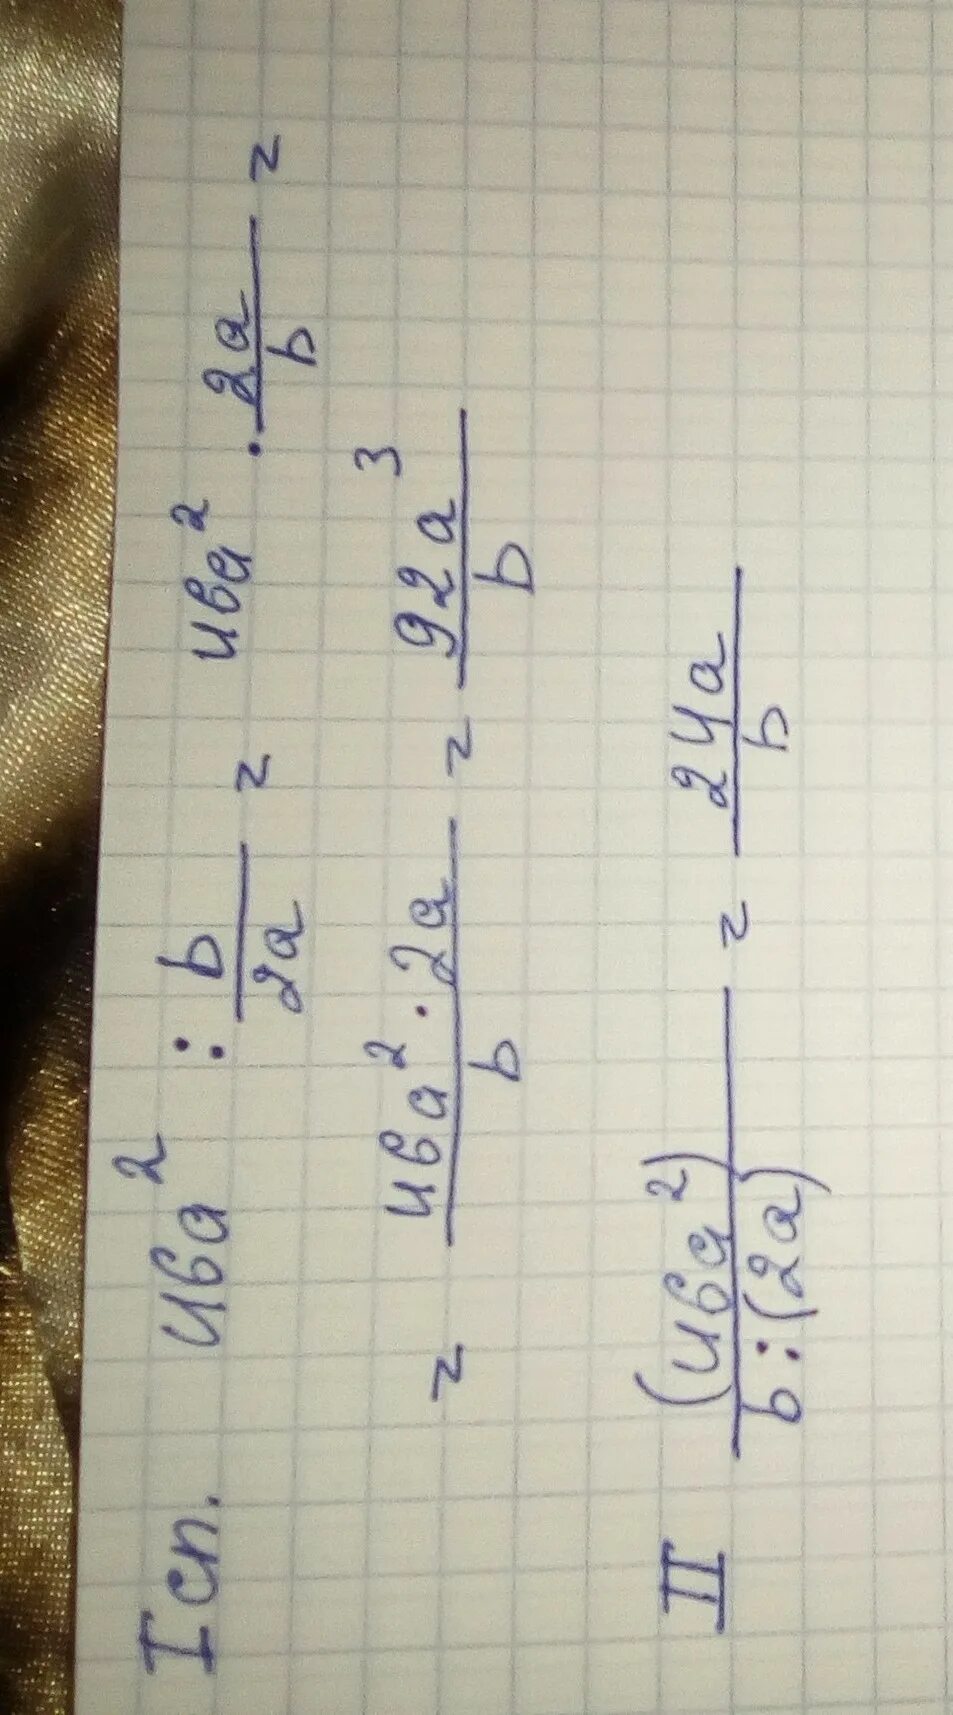 I сп. 46a² : b/2a = 46a² · 2a/b =
= 46a² · 2a/b = 92a³/b
II (46a²)/b:(2a) = 24a/b